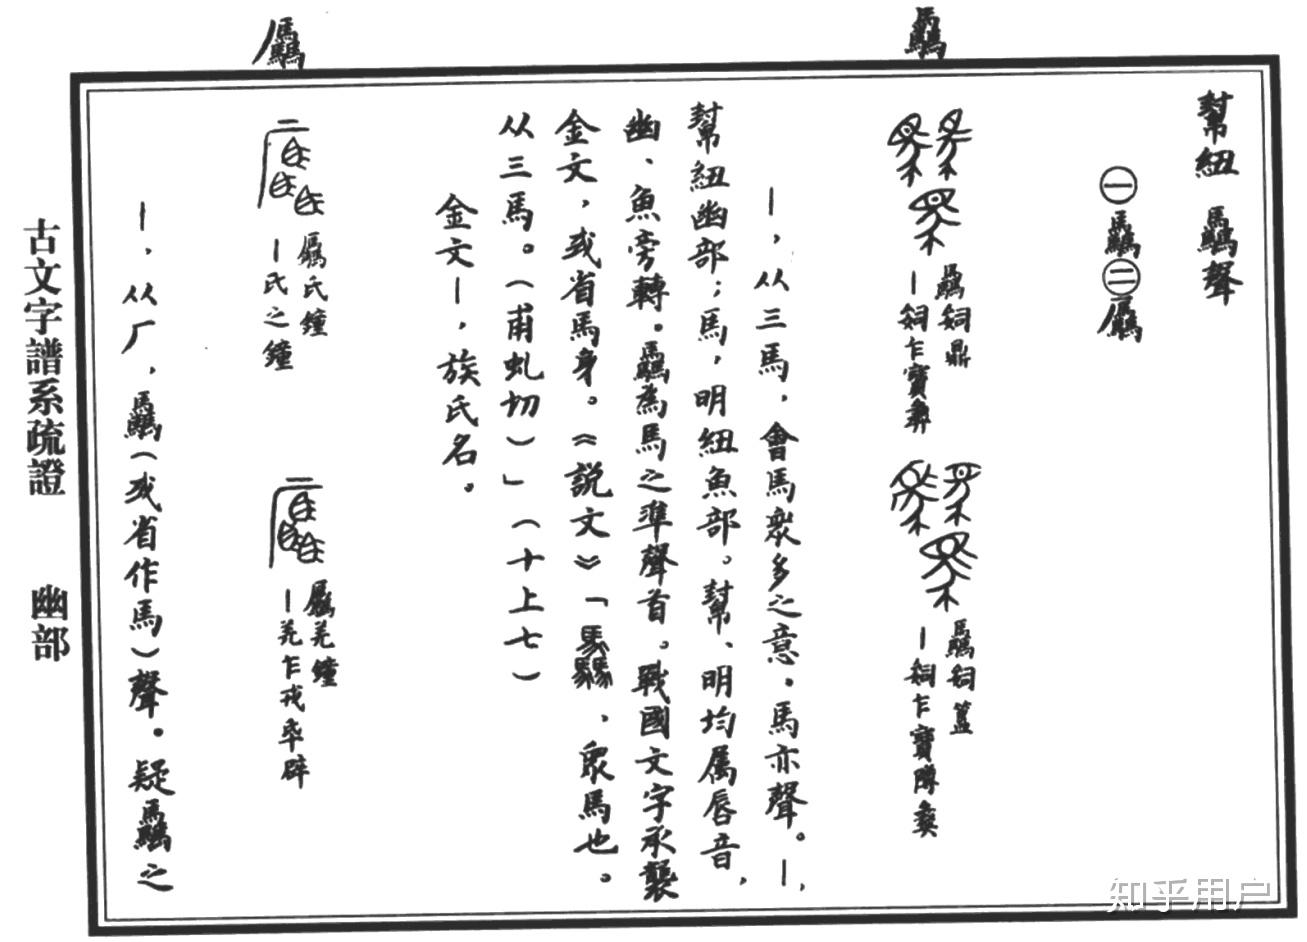 驫
𠪱
幫紐 驫聲
㊀驫㊁𠪱
驫㚸鼎
—㚸乍寶彝
驫㚸簋
—㚸乍寶障彝
—,从三馬,會馬衆多之意。馬亦聲。—,
幫紐幽部;馬,明紐魚部。幫、明均屬唇音,
幽、魚旁轉。驫為馬之準聲首。戰國文字承襲
金文,或省馬身。《說文》「驫,衆馬也。
从三馬。(甫虬切)」(十上七)
金文—,族氏名。
𠪱氏鐘
—氏之鐘
𠪱羌鐘
—羌乍戎
辟
—,从厂,驫(或省作馬)聲。疑驫之
古文字譜系疏證 幽部
知乎用户